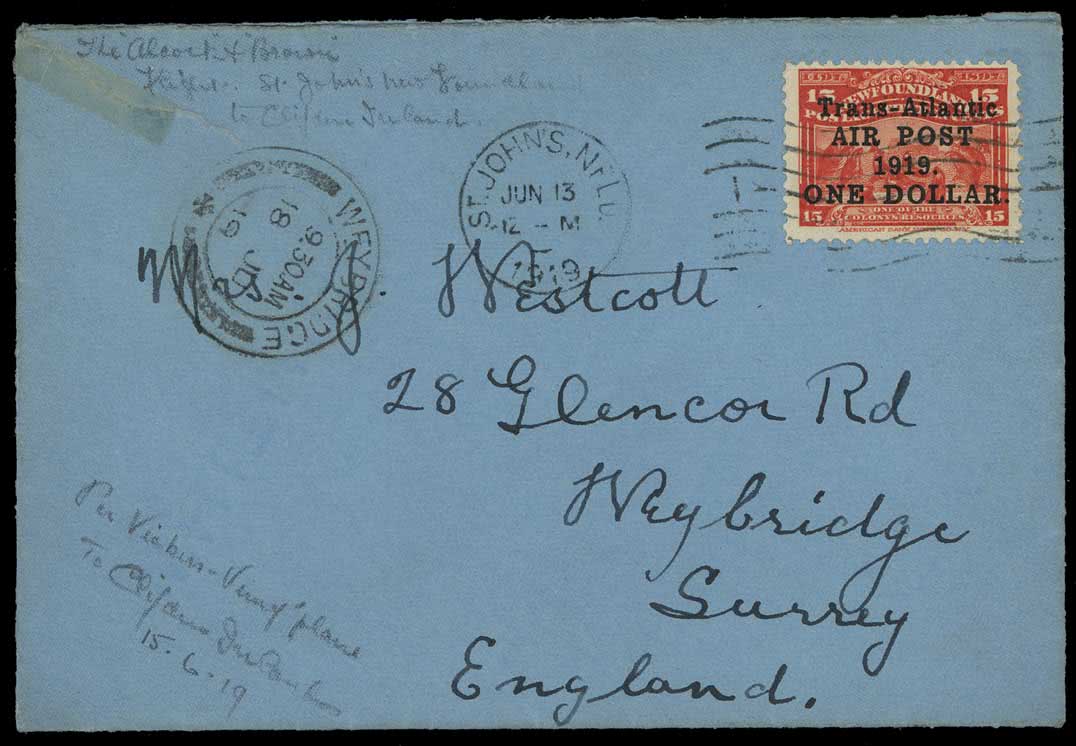 The Alcock & Brown
Flight. St. John's New Foundland
to Clifden Ireland.
15 15
NEWFOUNDLAND
Trans-Atlantic
AIR POST
1919.
ONE DOLLAR.
15 ONE OF THE 15
COLONY'S RESOURCES
AMERICAN BANK
ST. JOHN'S, NFLD.
JUN 13
12 - M
1919
WEYBRIDGE
9.30AM
18 JU
19
M J. Westcott
28 Glencoe Rd
Weybridge
Surrey
England.
Per Vickers-Vimy plane
To Clifden Ireland
15-6-19